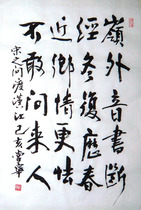 嶺外音書斷
經冬復歷春
近鄉情更怯
不敢问来人
宋之问渡漢江己亥